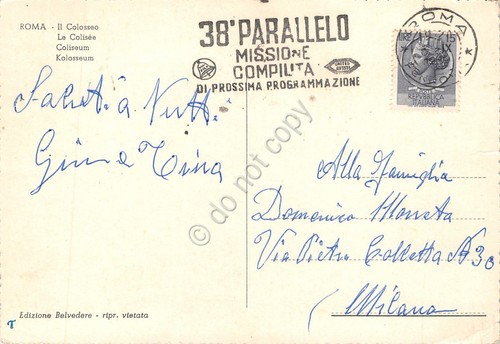 ROMA - Il Colosseo
Le Colisée
Coliseum
Kolosseum
38° PARALLELO
MISSIONE
COMPIUTA
DI PROSSIMA PROGRAMMAZIONE
UNITED
ARTISTS
ROMA
15
REPUBBLICA
ITALIANA
Saluti a Tutti
Gino e Tina
Alla Famiglia
Domenico
Via Pietro Colletta N 30
Milano
Edizione Belvedere - ripr. vietata
do not copy